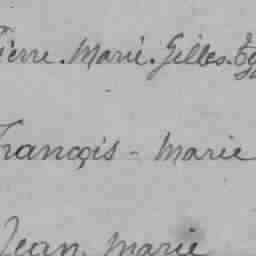 Pierre. Marie. Gilles.
François - Marie
Jean Marie